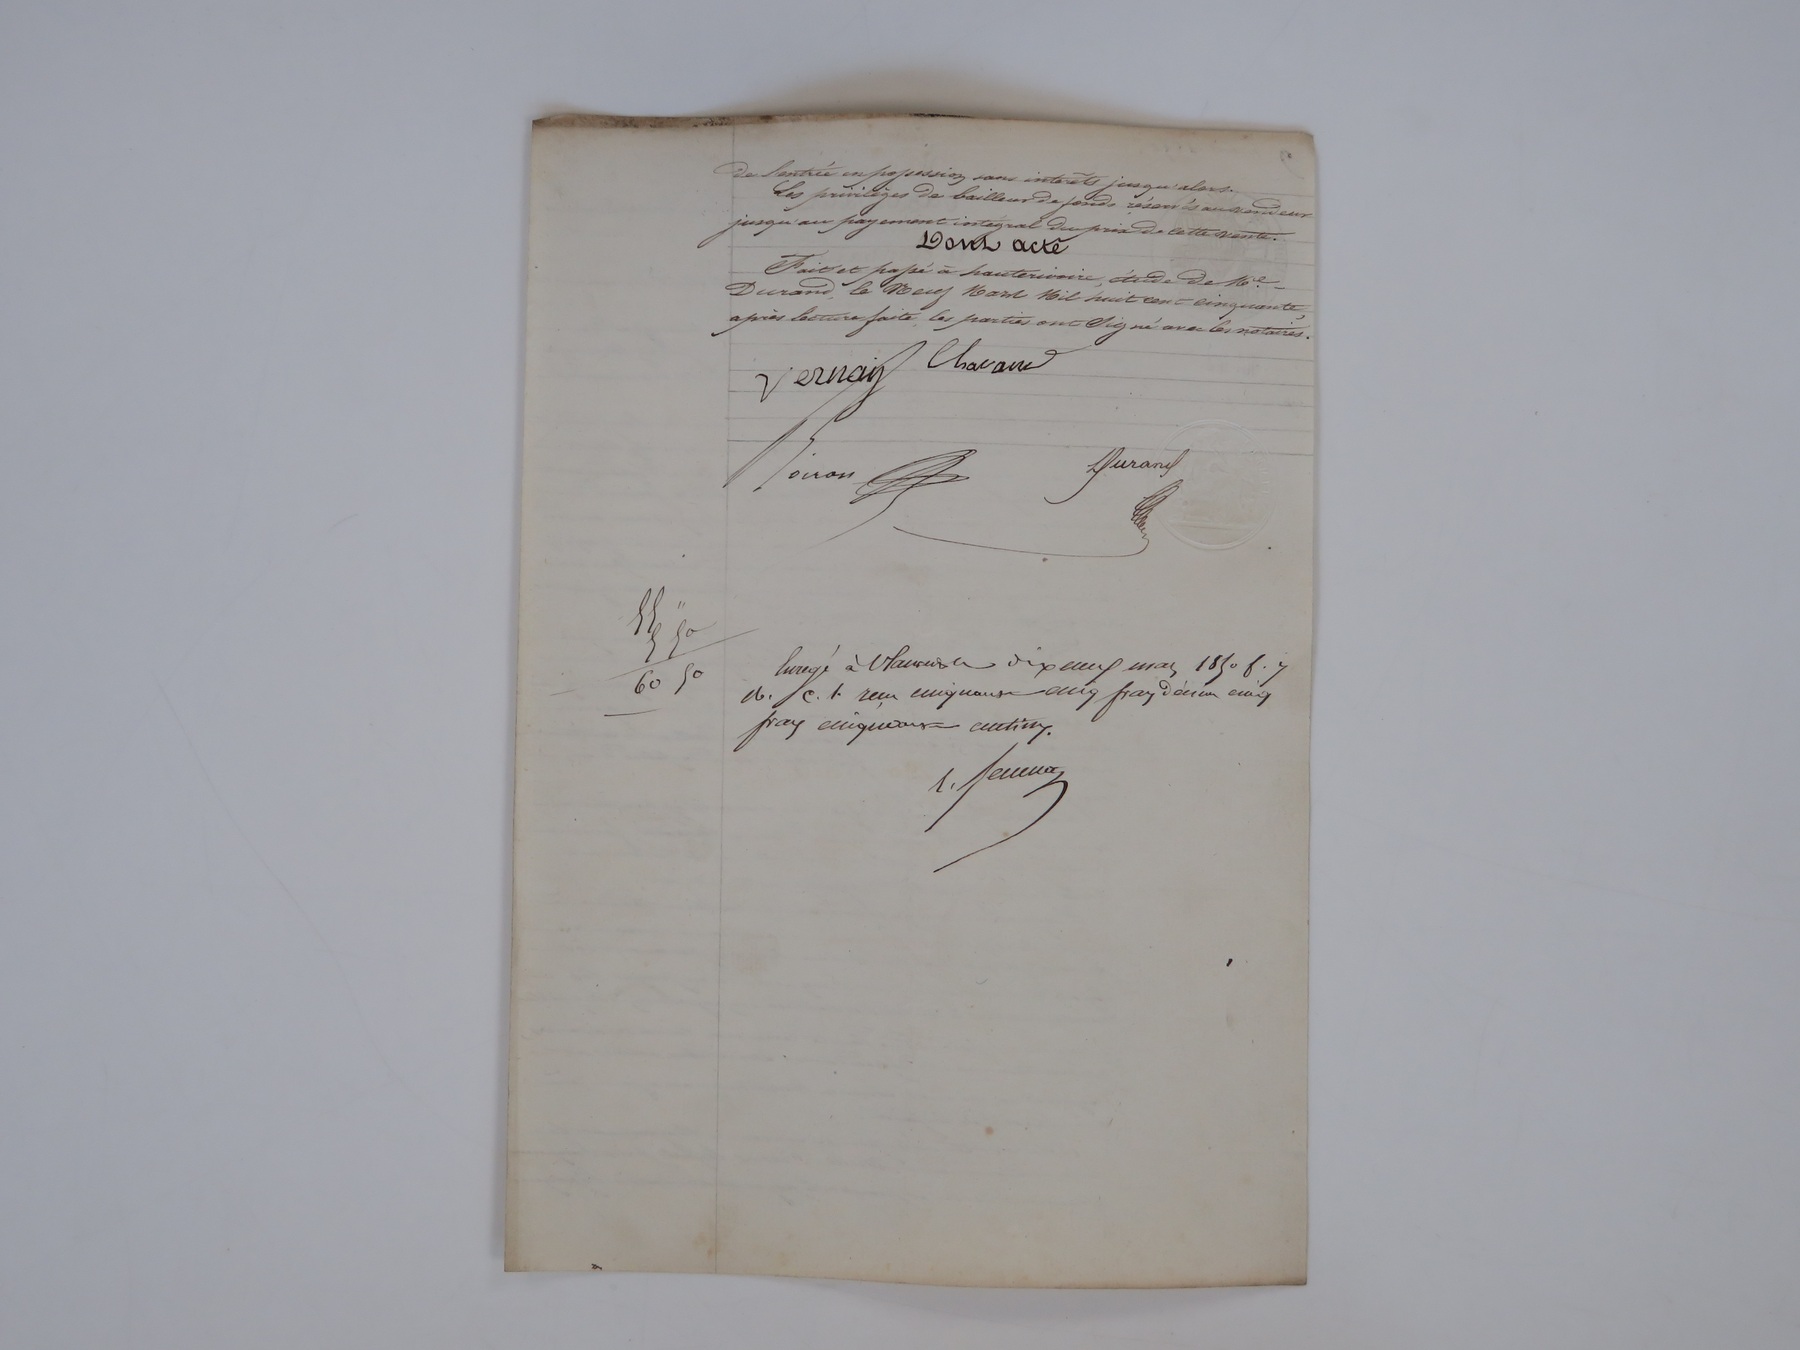 de l'entrée en possession sans intérêts jusqu'alors.
Les privilèges de bailleur de fonds réservés au vendeur
jusqu'au payement intégral du prix de cette vente.
Dont acte
Fait et passé à hauterivoire, étude de Me
Durand, le Neuf Mars Mil huit cent cinquante,
après lecture faite, les parties ont Signé avec les notaires.
Vernay Chavand
Durand
55 "
5 50
60 50
Enregé à dix neuf mars 1850 f. 7
c. reçu cinquante cinq francs décime cinq
francs cinquante centimes.